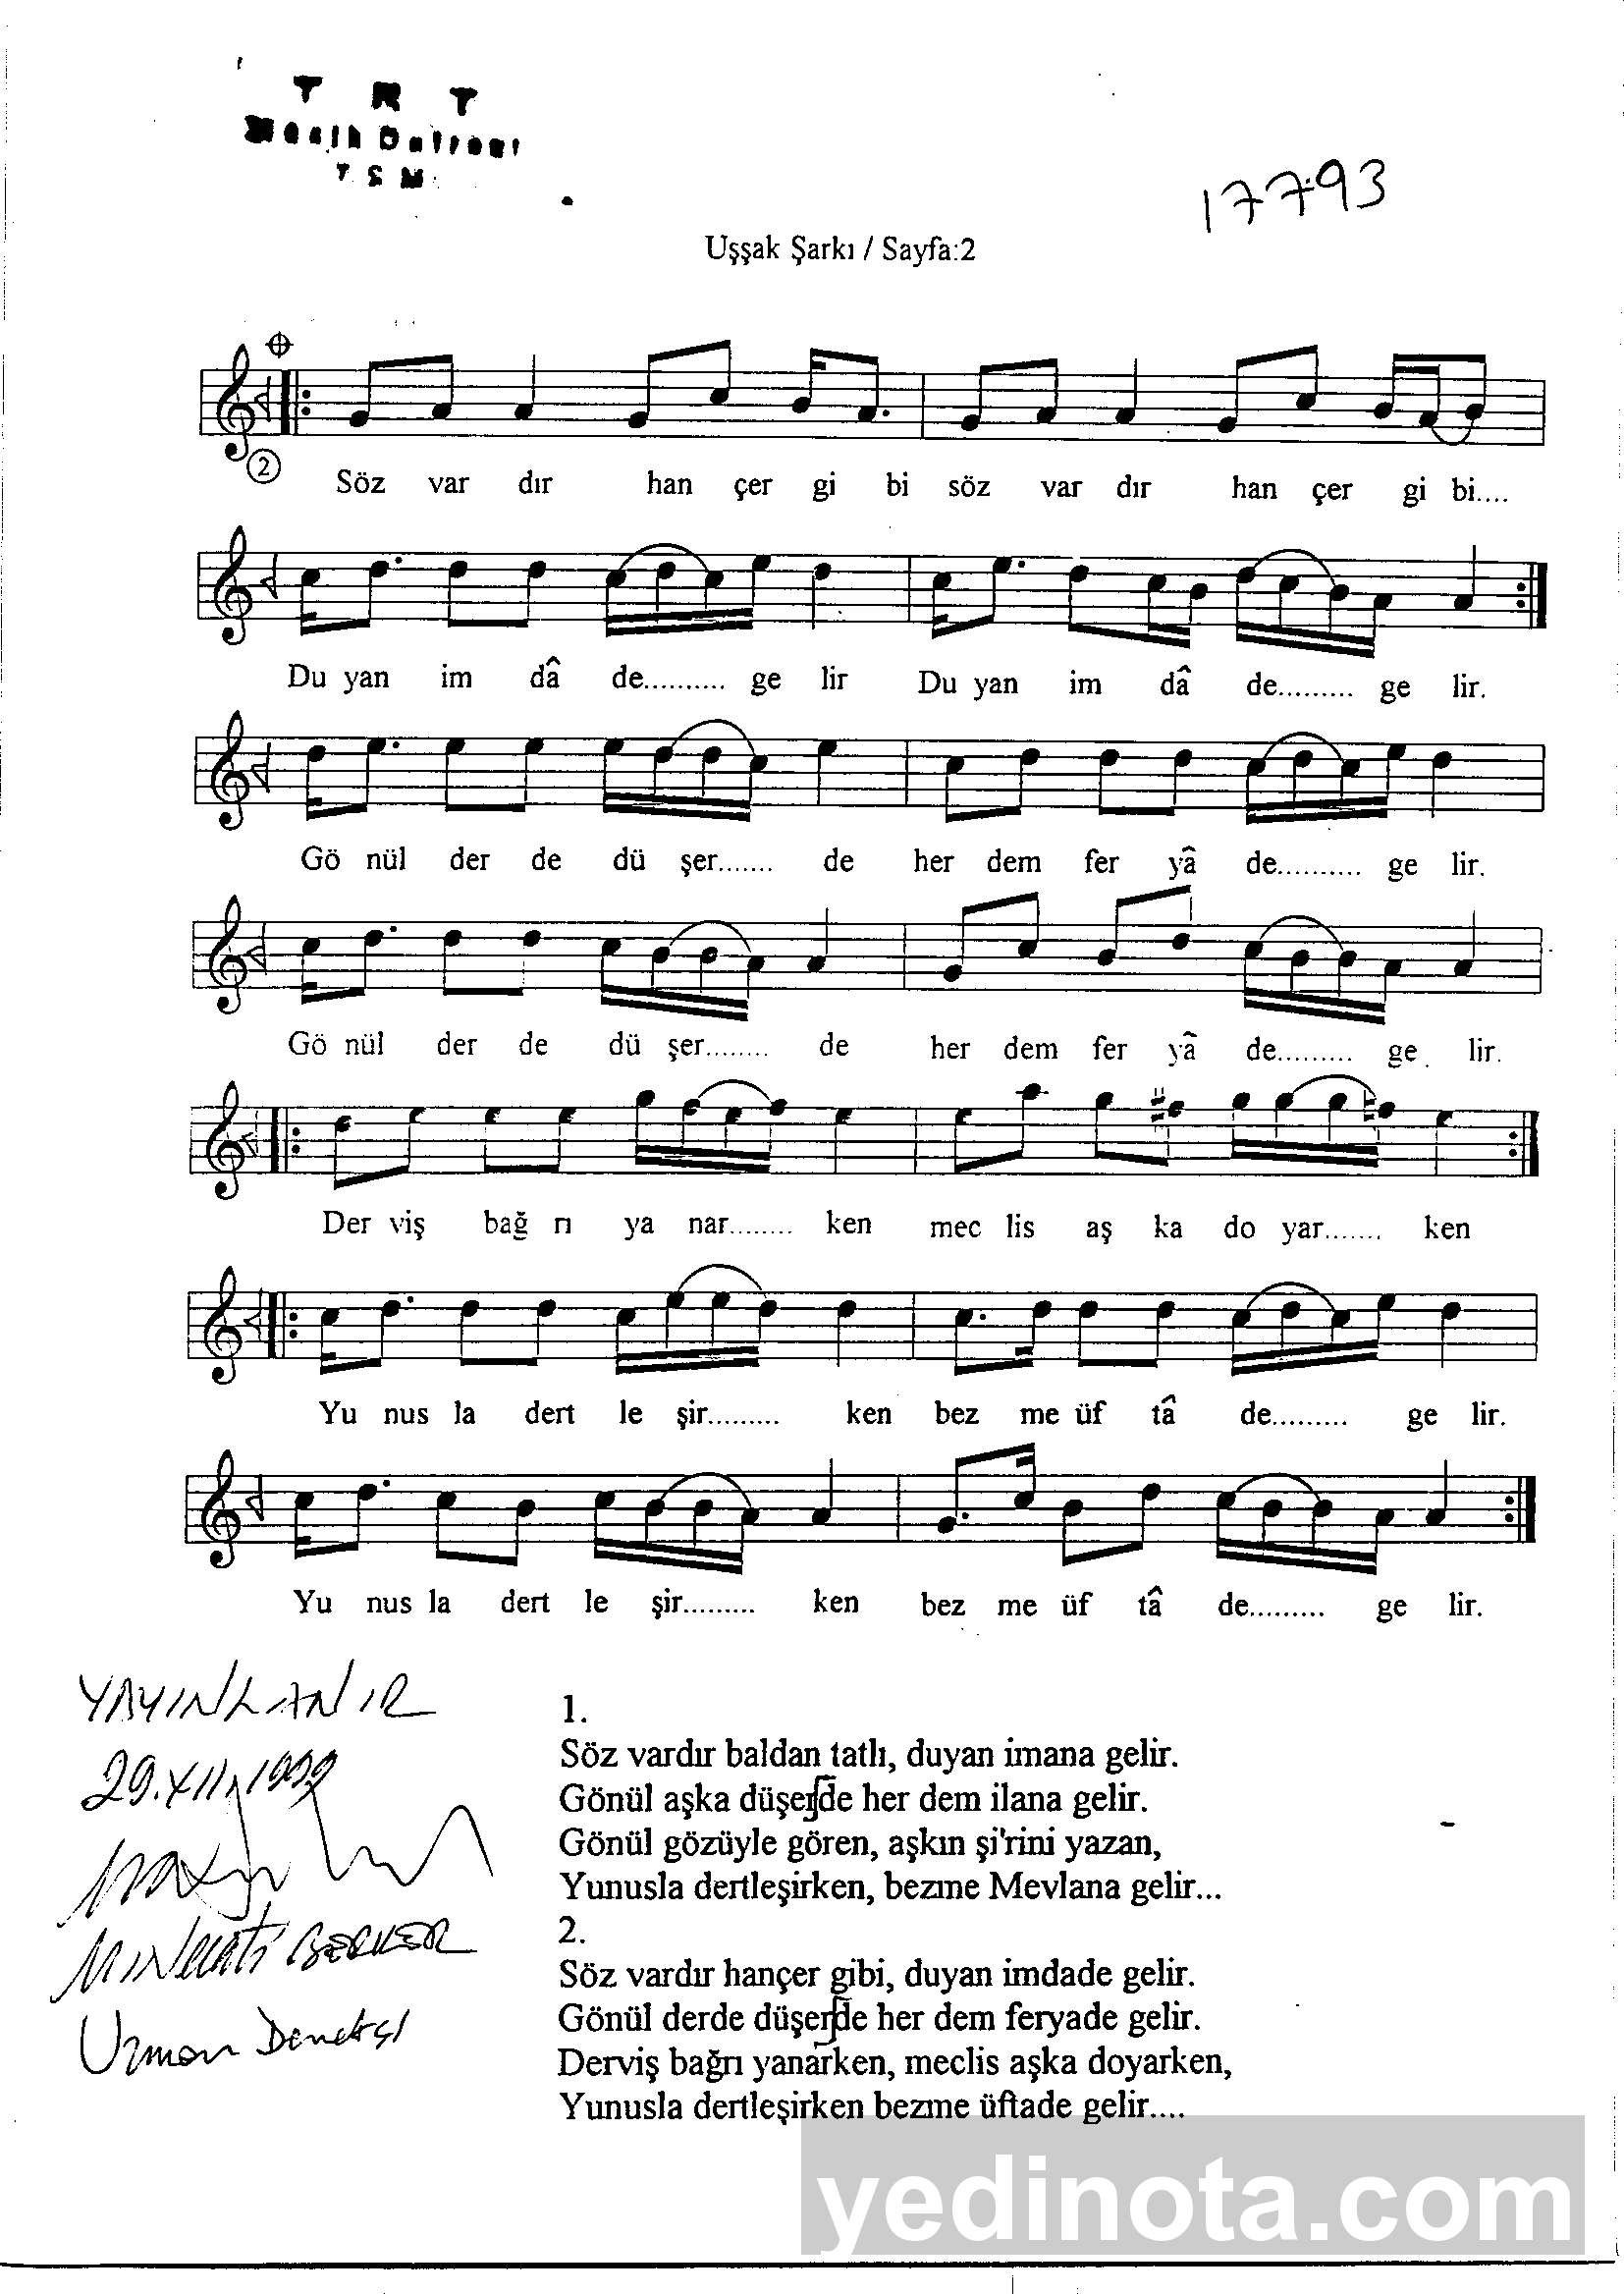 T R T
T S M
17793
Uşşak Şarkı / Sayfa:2
2
Söz var dır han çer gi bi söz var dır han çer gi bi....
Du yan im dâ de.......... ge lir Du yan im dâ de......... ge lir.
Gö nül der de dü şer....... de her dem fer yâ de.......... ge lir.
Gö nül der de dü şer........ de her dem fer yâ de......... ge lir.
Der viş bağ rı ya nar........ ken mec lis aş ka do yar....... ken
Yu nus la dert le şir......... ken bez me üf tâ de......... ge lir.
Yu nus la dert le şir......... ken bez me üf tâ de......... ge lir.
YAYINLANIR
29.XII.1999
BERKER
Uzman Denetçi
1.
Söz vardır baldan tatlı, duyan imana gelir.
Gönül aşka düşer de her dem ilana gelir.
Gönül gözüyle gören, aşkın şi'rini yazan,
Yunusla dertleşirken, bezme Mevlana gelir...
2.
Söz vardır hançer gibi, duyan imdade gelir.
Gönül derde düşer de her dem feryade gelir.
Derviş bağrı yanarken, meclis aşka doyarken,
Yunusla dertleşirken bezme üftade gelir....
yedinota.com